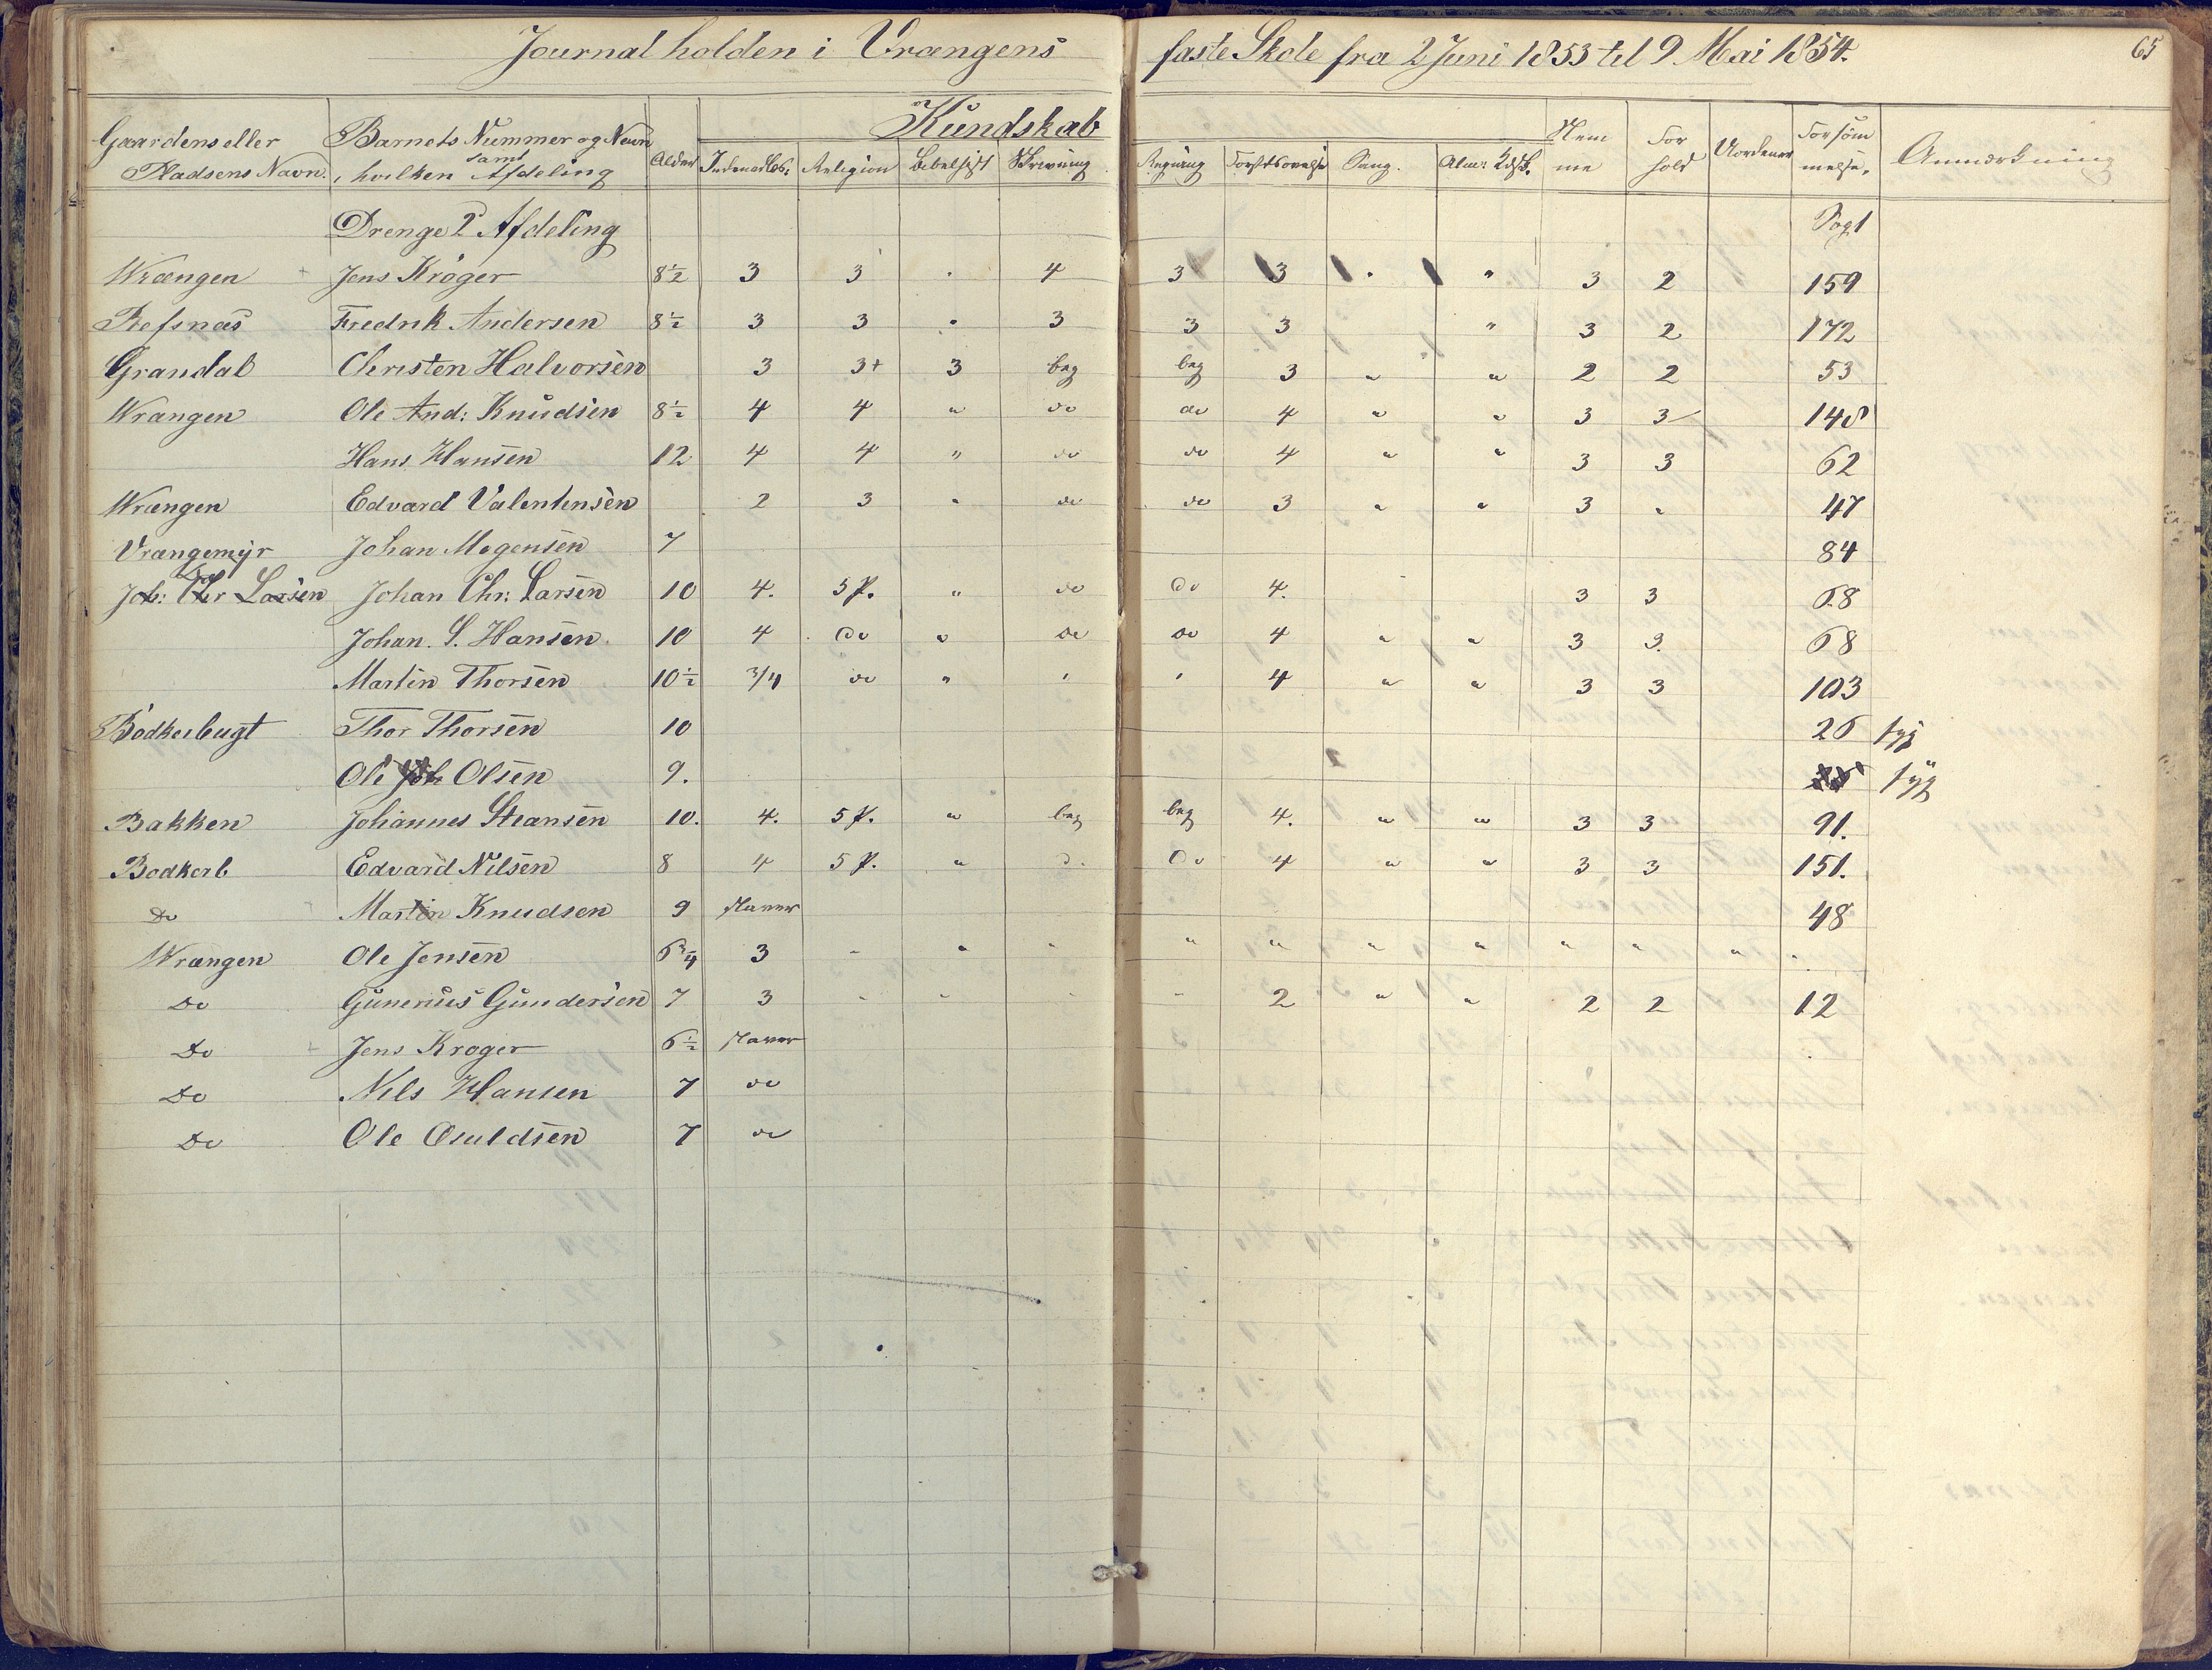 Journal holden i Vrængens faste Skole fra 2 Juni 1853 til 9 Mai 1854. 65
Gaardens eller Pladsens Navn. Barnets Nummer og Navn samt i hvilken Afdeling Alder Kundskab Indenadlæs: Religion Bibelhist Skrivning Regning Forstdsøvelse Sang. Alm: Kdsk. Nemme Forhold Uordener Forsömmelse. Anmærkning
Drenge 2 Afdeling Dage
Wrængen Jens Krøger 8½ 3 3 " 4 3 3 " " 3 2 159
Refsnæs Fredrik Andersen 8½ 3 3 " 3 3 3 " 3 2 172
Grandal Christen Halvorsen 3 3+ 3 beg beg 3 " " 2 2 53
Wrangen Ole And: Knudsen 8½ 4 4 " do do 4 " " 3 3 148
Hans Hansen 12 4 4 " do do 4 " " 3 3 62
Wrængen Edvard Valentensen 2 3 " do do 3 " " 3 " 47
Vrangemyr Johan Mogensen 7 84
Joh: Chr Larsen Johan Chr: Larsen 10 4. 5 P. " do do 4. 3 3 68
Johan. S. Hansen 10 4 do " do do 4 " " 3 3. 68
Martin Thorsen 10½ 3/4 do " " " 4 " " 3 3 103
Bödkerbugt Thor Thorsen 10 26 syg
Ole Joh Olsen 9. syg
Bakken Johannes Steansen 10. 4. 5 P. " beg beg 4. " " 3 3 91.
Bödkerb Edvard Nilsen 8 4 5 P. " do do 4 " " 3 3 151.
Do Martin Knudsen 9 Staver 48
Wrangen Ole Jensen 6¾ 3 - " " " " " " " " " "
Do Gunerius Gundersen 7 3 - - - - 2 " " 2 2 12
Do Jens Kroger 6½ Staver
Do Nils Hansen 7 do
Do Ole Osuldsen 7 do